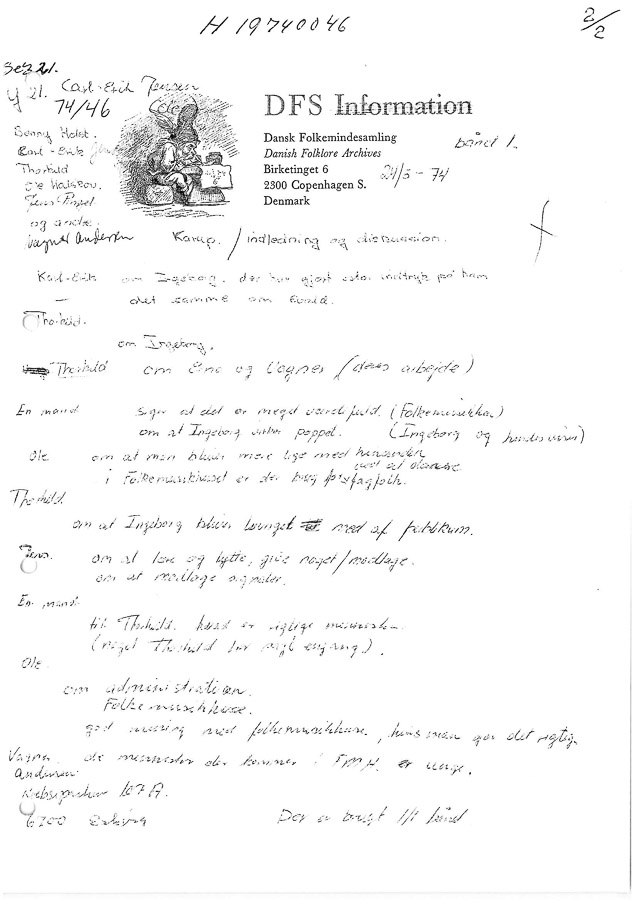 H 19740046
2/2
21.
Y 21. Carl-Erik Jensen
74/46
DFS Information
Benny Holst.
Dansk Folkemindesamling
bånd 1.
Karl-Erik
Danish Folklore Archives
Thorkild
Birketinget 6
21/3-74
Ole
2300 Copenhagen S.
Jens
Denmark
og andre.
Vagner Andersen Karup. / indledning og diskussion.
Karl-Erik om Ingeborg. der har gjort stor indtryk på ham
— det samme om Evald.
Thorkild.
om Ingeborg.
Thorkild om Eine og Vagner (deres arbejde)
En mand siger at det er meget værdifuld. (Folkemusikken)
om at Ingeborg virker poppet. (Ingeborg og hendes viser)
Ole om at man bliver mere lige med hinanden
ved at danse
i Folkemusikhuset er der brug for fagfolk.
Thorkild.
om at Ingeborg bliver tvunget med af publikum.
Jens. om at lære og lytte, give noget/modtage.
om at modtage signaler.
En mand
til Thorkild. hvad er rigtige mennesker
(noget Thorkild har sagt engang).
Ole
om administration.
Folkemusikhuse.
god mening med folkemusikhuse, hvis man gør det rigtig.
Vagner de mennesker der kommer i F.M.H. er unge.
Andersen
107A.
6700 Esbjerg Der er brugt 1/1 bånd